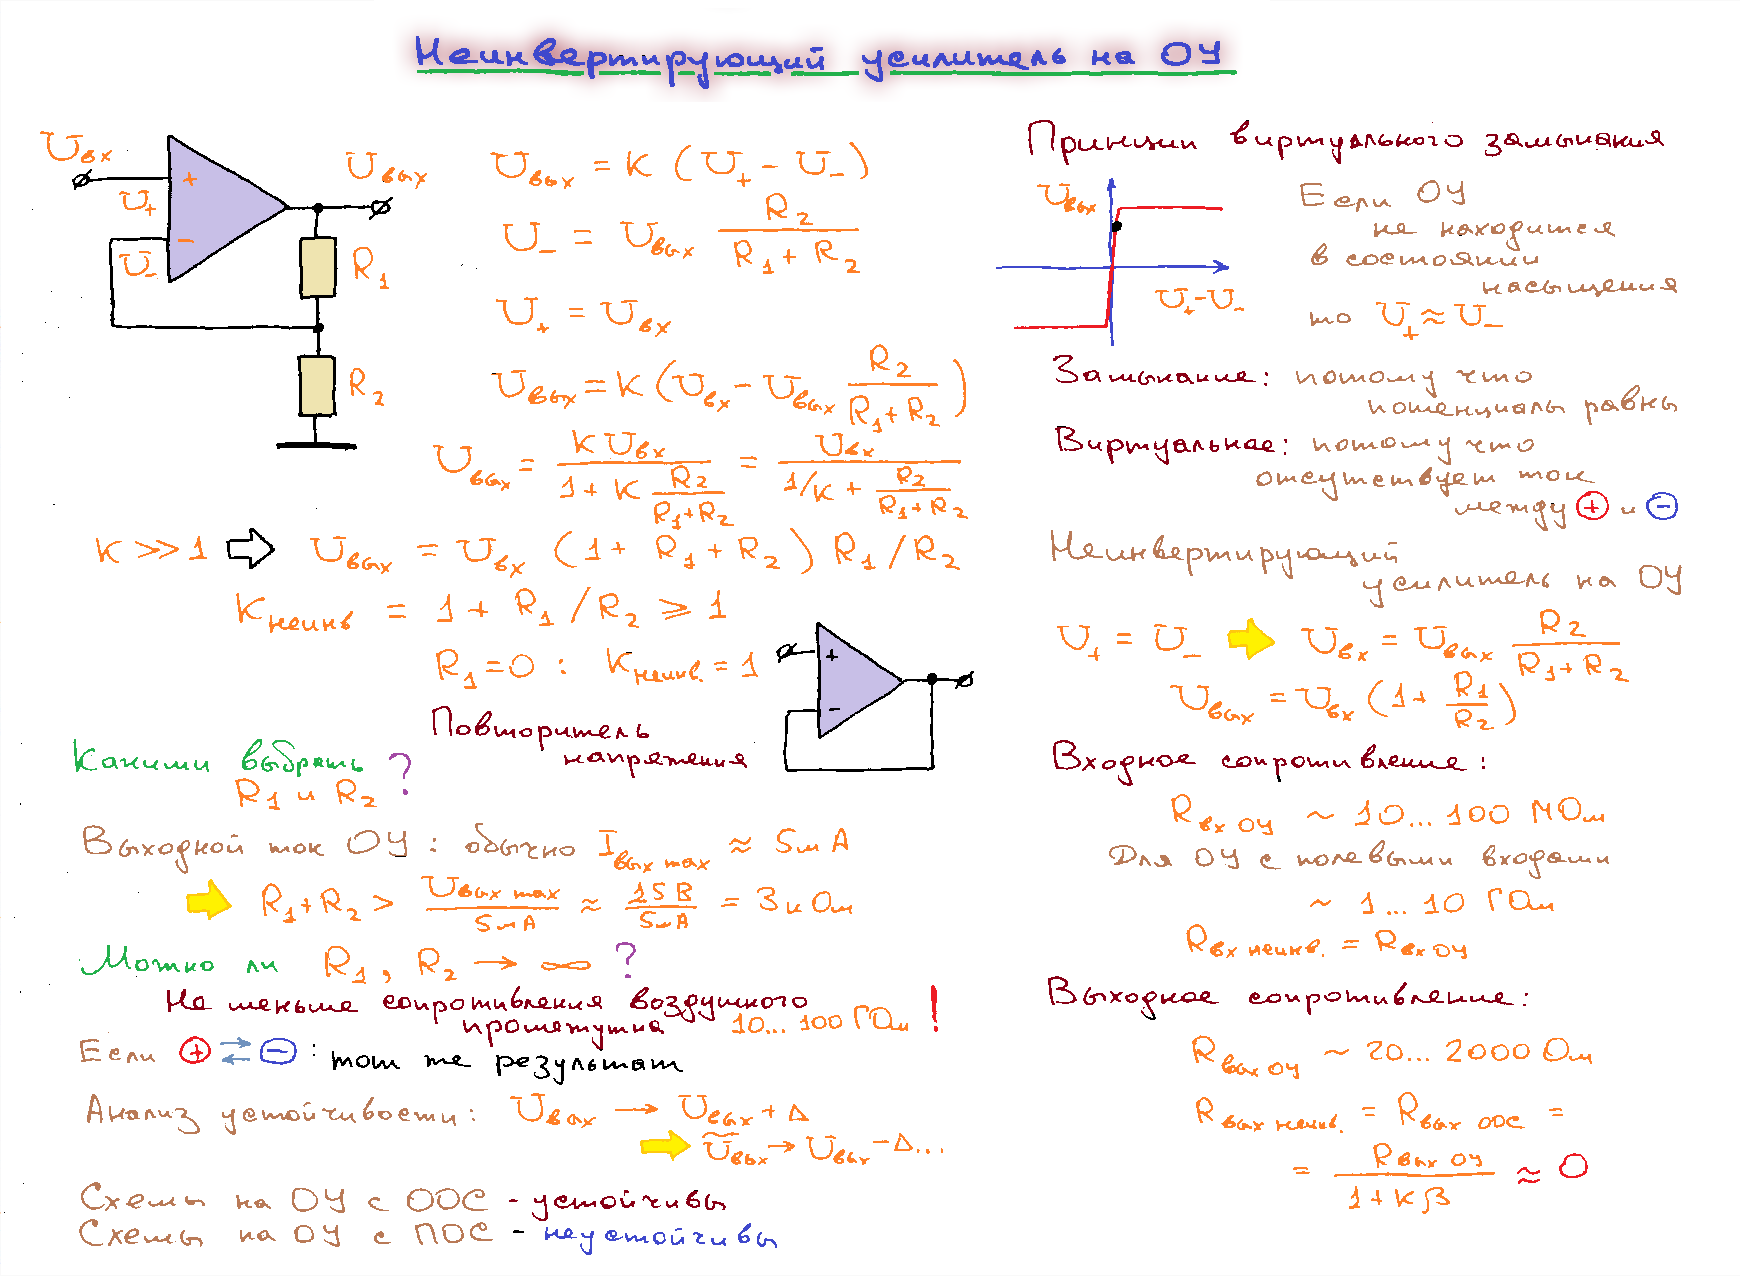 Неинвертирующий усилитель на ОУ
Uвх
U+
U-
+
-
Uвых
R1
R2
Uвых = K (U+ - U-)
U- = Uвых R2 / (R1 + R2)
U+ = Uвх
Uвых = K (Uвх - Uвых R2 / (R1 + R2))
Uвых = K Uвх / (1 + K R2 / (R1+R2)) = Uвх / (1/K + R2 / (R1+R2))
K >> 1 ⇨ Uвых = Uвх (1 + R1 + R2) R1 / R2
Kнеинв = 1 + R1 / R2 ⩾ 1
R1 = 0 : Kнеинв. = 1
+
-
Повторитель
напряжения
Какими выбрать
R1 и R2 ?
Выходной ток ОУ : обычно Iвых max ≈ 5мА
⇨ R1+R2 > Uвых max / 5мА ≈ 15В / 5мА = 3кОм
Можно ли R1, R2 → ∞ ?
Не меньше сопротивления воздушного
промежутка 10...100 ГОм !
Если + ⇄ - : тот же результат
Анализ устойчивости: Uвых → Uвых + Δ
⇨ Ũвых → Uвых - Δ...
Схемы на ОУ с ООС - устойчивы
Схемы на ОУ с ПОС - неустойчивы
Принцип виртуального замыкания
Uвых
U+-U-
Если ОУ
не находится
в состоянии
насыщения
то U+ ≈ U-
Замыкание: потому что
потенциалы равны
Виртуальное: потому что
отсутствует ток
между + и -
Неинвертирующий
усилитель на ОУ
U+ = U- ⇨ Uвх = Uвых R2 / (R1 + R2)
Uвых = Uвх (1 + R1 / R2)
Входное сопротивление:
Rвх ОУ ~ 10...100 МОм
Для ОУ с полевыми входами
~ 1...10 ГОм
Rвх неинв. = Rвх ОУ
Выходное сопротивление:
Rвых ОУ ~ 20...2000 Ом
Rвых неинв. = Rвых ООС =
= Rвых ОУ / (1 + Kβ) ≈ 0